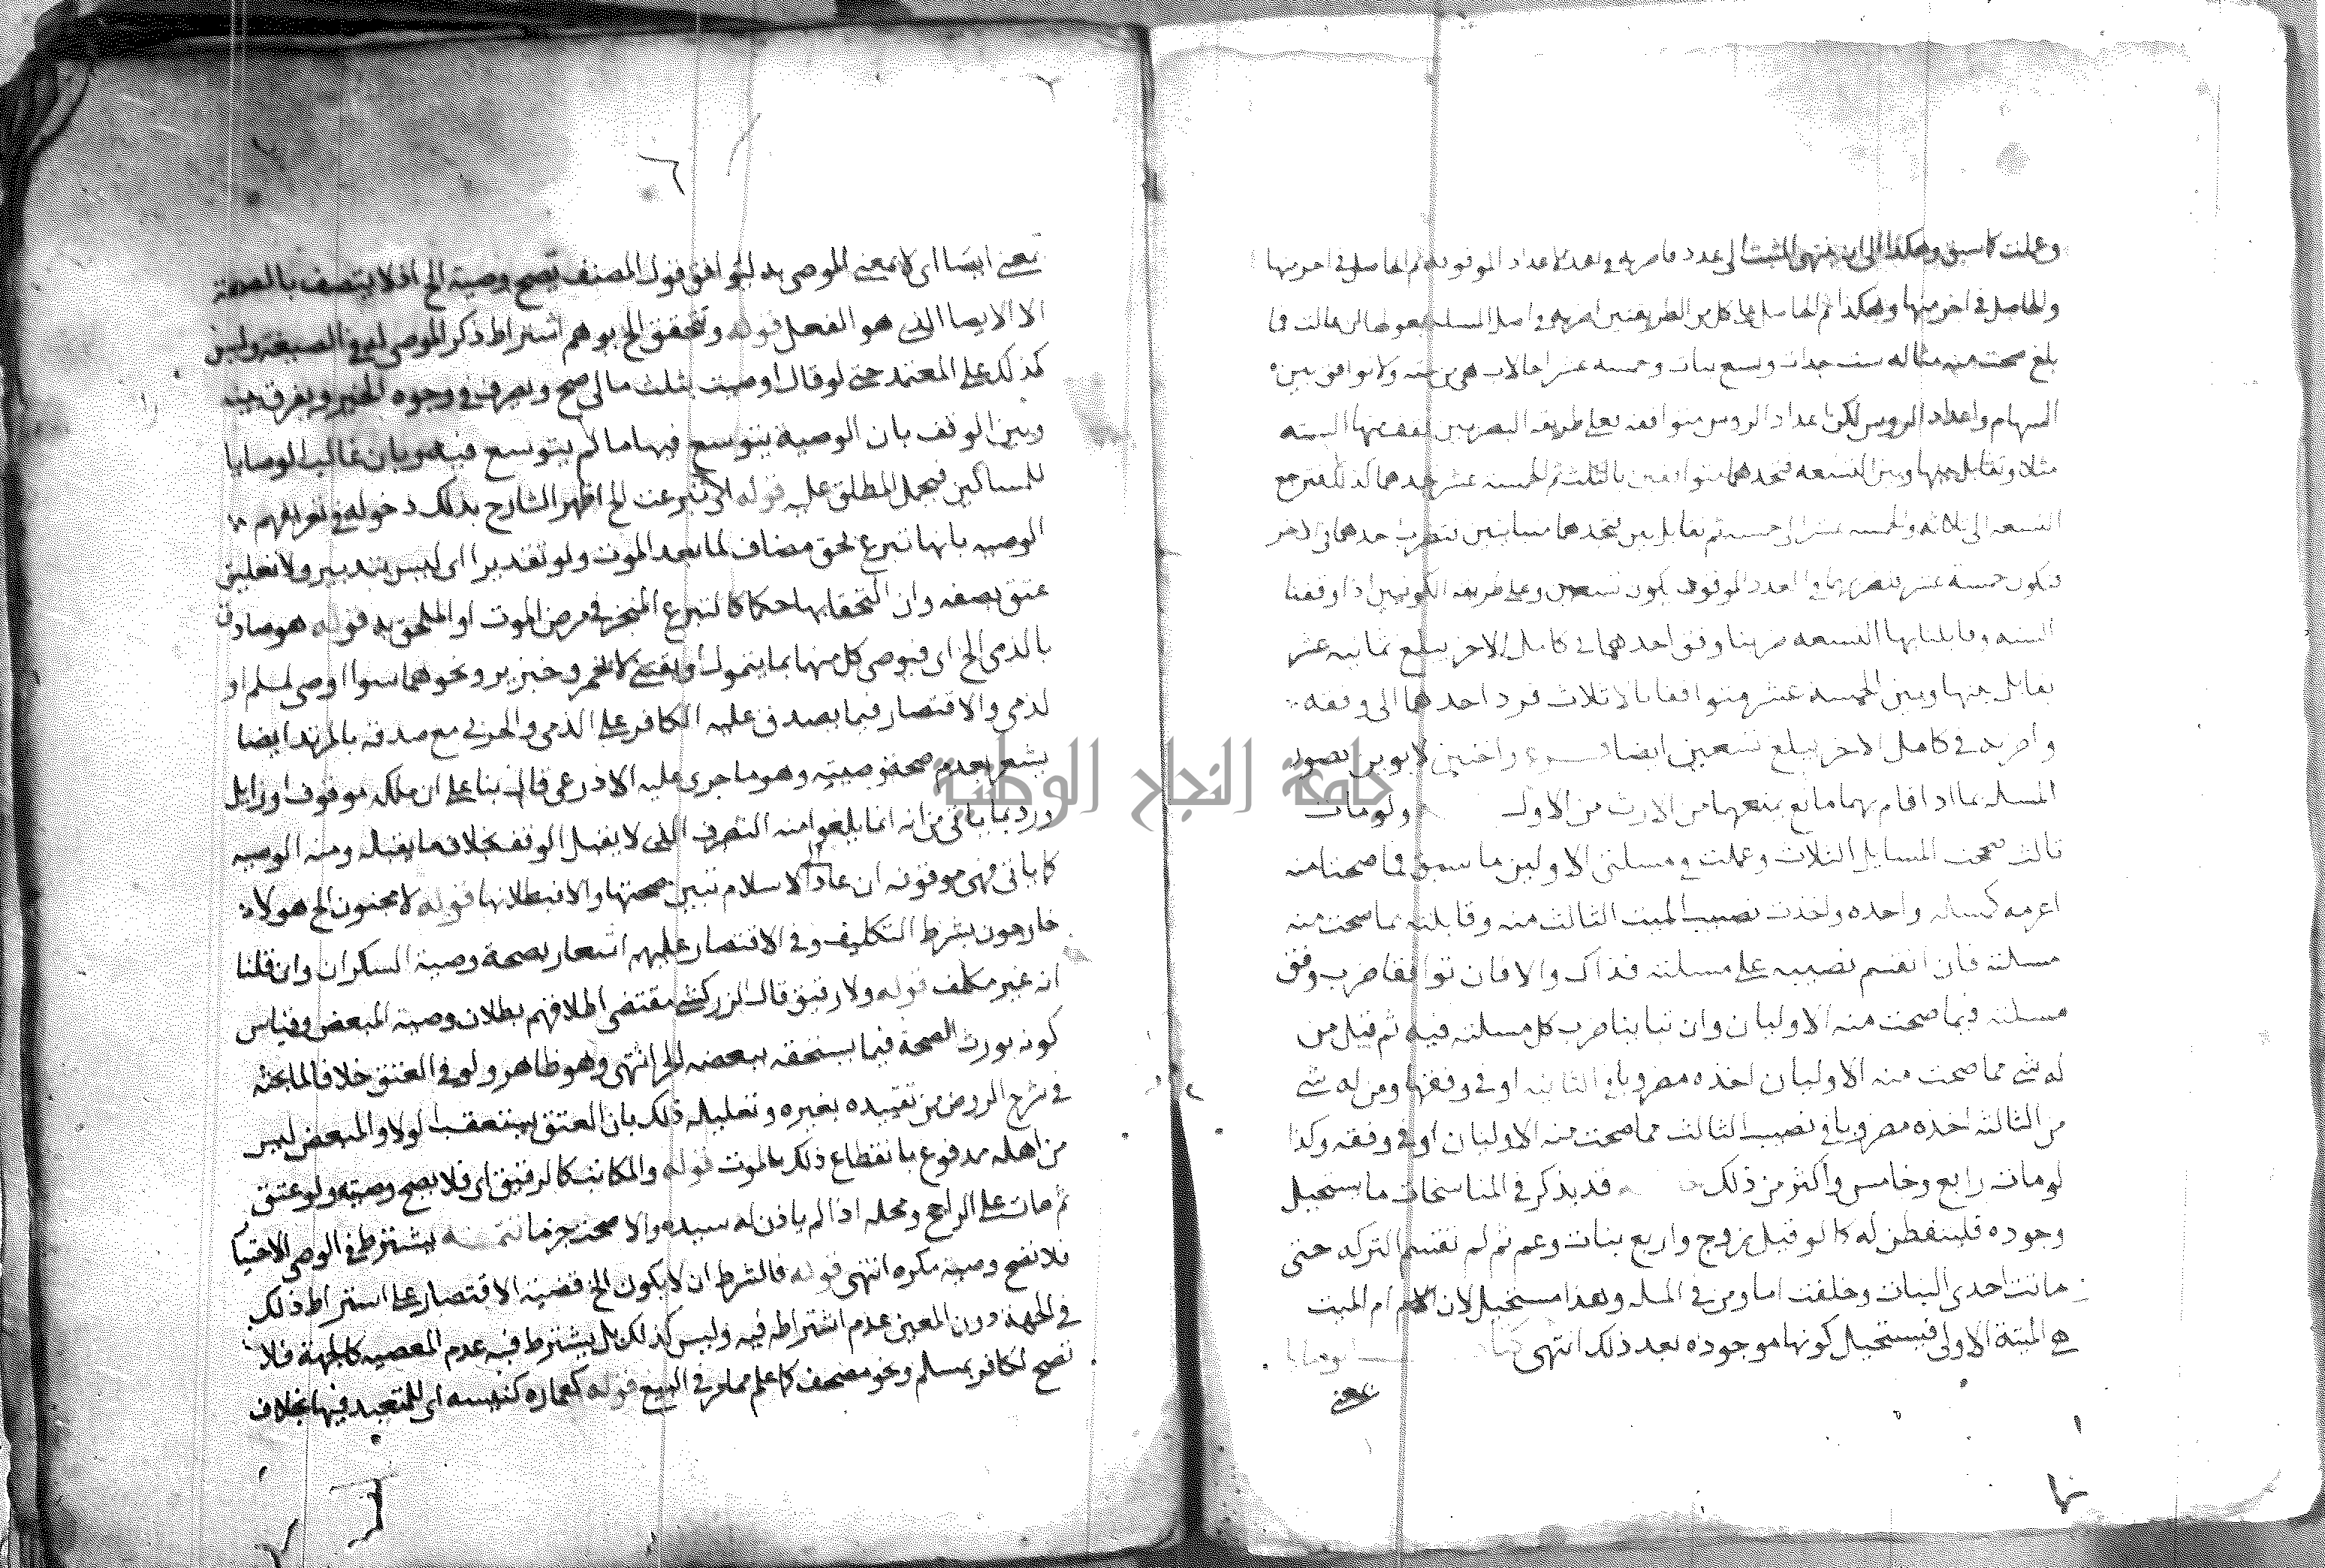 وعلت كما سبق وهكذا الى ان ينتهي المثبت الى عدد فاضربه في احد الاعداد الموقوفة ثم الحاصل في اخر منها
والحاصل في اخر منها وهكذا ثم الحاصل على كل من الطريقتين اضربه في اصل المسلة بعولها ان عالت فما
بلغ صحت منه مثاله ست جدات وتسع بنات وخمسة عشر اخا لاب هي من ستة ولا توافق بين
السهام واعداد الروس لكن اعداد الروس متوافقة فعلى طريقة البصريين تقف منها الستة
مثلا وتقابل بينها وبين التسعة فتجدهما متوافقين بالثلث ثم الخمسة عشر تجدهما كذلك فترجع
التسعة الى ثلاثة والخمسة عشر الى خمسة ثم تقابل بين تجدهما متباينين فتضرب احدهما في الاخر
تكون خمسة عشر تضربها في العدد الموقوف يكون تسعين وعلى طريقة الكوفيين اذا وقفنا
الستة وقابلنا بها التسعة ضربنا وفق احدهما في كامل الاخر يبلغ ثمانية عشر
يقابل بينها وبين الخمسة عشر متوافقا بالاثلاث فرد احدهما الى وفقه
واضربه في كامل الاخر يبلغ تسعين ايضا واختين لابوين تصور
المسلة بما اذا قام بهما مانع يمنعهما من الارث من الاول ولو مات
ثالث صححت المسايل الثلاث وعملت في مسلتي الاولين ما سبق فما صحتا منه
اعرفه كمسلة واحدة واخذت نصيب الميت الثالث منه وقابلته بما صحت منه
مسلته فان انقسم نصيبه على مسلته فذاك والا فان توافقا ضرب وفق
مسلته فيما صحت منه الاوليان وان تباينا ضرب كل مسلته فيه ثم قيل من
له شي مما صحت منه الاوليان اخذه مضروبا في الثالثة او في وفقها ومن له شي
من الثالثة اخذه مضروبا في نصيب الثالث مما صحت منه الاوليان او في وفقه وكذا
لو مات رابع وخامس واكثر من ذلك قد يذكر في المناسخات ما يستحيل
وجوده فليتفطن له كما لو قيل زوج واربع بنات وعم ثم لم تقسم التركة حتى
ماتت احدى البنات وخلفت اما ومن في المسلة وهذا مستحيل لان الام ام الميت
هي الميتة الاولى فيستحيل كونها موجودة بعد ذلك انتهى
بمعنى
٦
بمعنى ايضا اي لا بمعنى الموصى به ليوافق قول المصنف تصح وصية الخ اذ لا يتصف بالصحة
الا الايصا الذي هو الفعل قوله وتتحقق الخ يوهم اشتراط ذكر الموصى له في الصيغة وليس
كذلك على المعتمد حتى لو قال اوصيت بثلث مالي صح ويصرف في وجوه الخير ويفرق بينه
وبين الوقف بان الوصية يتوسع فيها ما لم يتوسع فيه وبان غالب الوصايا
للمساكين فيحمل المطلق عليه قوله لا تبرعت الخ اظهر الشارح بذلك دخوله في تعريفهم
الوصية بانها تبرع بحق مضاف لما بعد الموت ولو تقديرا اي ليس بتدبير ولا تعليق
عتق بصفة وان التحقا بها حكما كالتبرع المنجز في مرض الموت او الملحق به قوله هو صادق
بالذمي الخ اي فيوصي كل منهما بما يتمول او يقتنى لا خمر وخنزير ونحوهما سوا اوصى لمسلم او
لذمي والاقتصار فيما يصدق عليه الكافر على الذمي والحربي مع صدقه بالمرتد ايضا
يشعر بعدم صحة وصيته وهو ما جرى عليه الاذرعي قال بنا على ان ملكه موقوف او زايل
ورد بما ياتي من انه انما يلغو منه التصرف الذي لا يقبل الوقف بخلاف ما يقبله ومنه الوصية
كما ياتي فهي موقوفة ان عاد الى الاسلام تبين صحتها والا فبطلانها قوله لا مجنون الخ هولاء
خارجون بشرط التكليف وفي الاقتصار عليهم اشعار بصحة وصية السكران وان قلنا
انه غير مكلف قوله ولا رقيق قال الزركشي مقتضى اطلاقهم بطلان وصية المبعض وقياس
كونه يورث الصحة فيما يستحقه ببعضه الحر انتهى وهو ظاهر ولو في العتق خلافا لما بحثه
في شرح الروض من تقييده بغيره وتعليله ذلك بان العتق يستعقب الولا والمبعض ليس
من اهله مدفوع بانقطاع ذلك بالموت قوله والمكاتب كالرقيق اي فلا تصح وصيته ولو عتق
ثم مات على الراجح ومحله اذا لم ياذن له سيده والا صحت جزما يشترط في الموصي الاختيا
فلا تصح وصية مكره انتهى قوله فالشرط ان لا يكون الخ قضية الاقتصار على اشتراط ذلك
في الجهة دون المعين عدم اشتراطه فيه وليس كذلك بل يشترط فيه عدم المعصية كالجهة فلا
تصح لكافر بمسلم ونحو مصحف كما علم مما مر في البيع قوله كعمارة كنيسة اي للتعبد فيها بخلاف